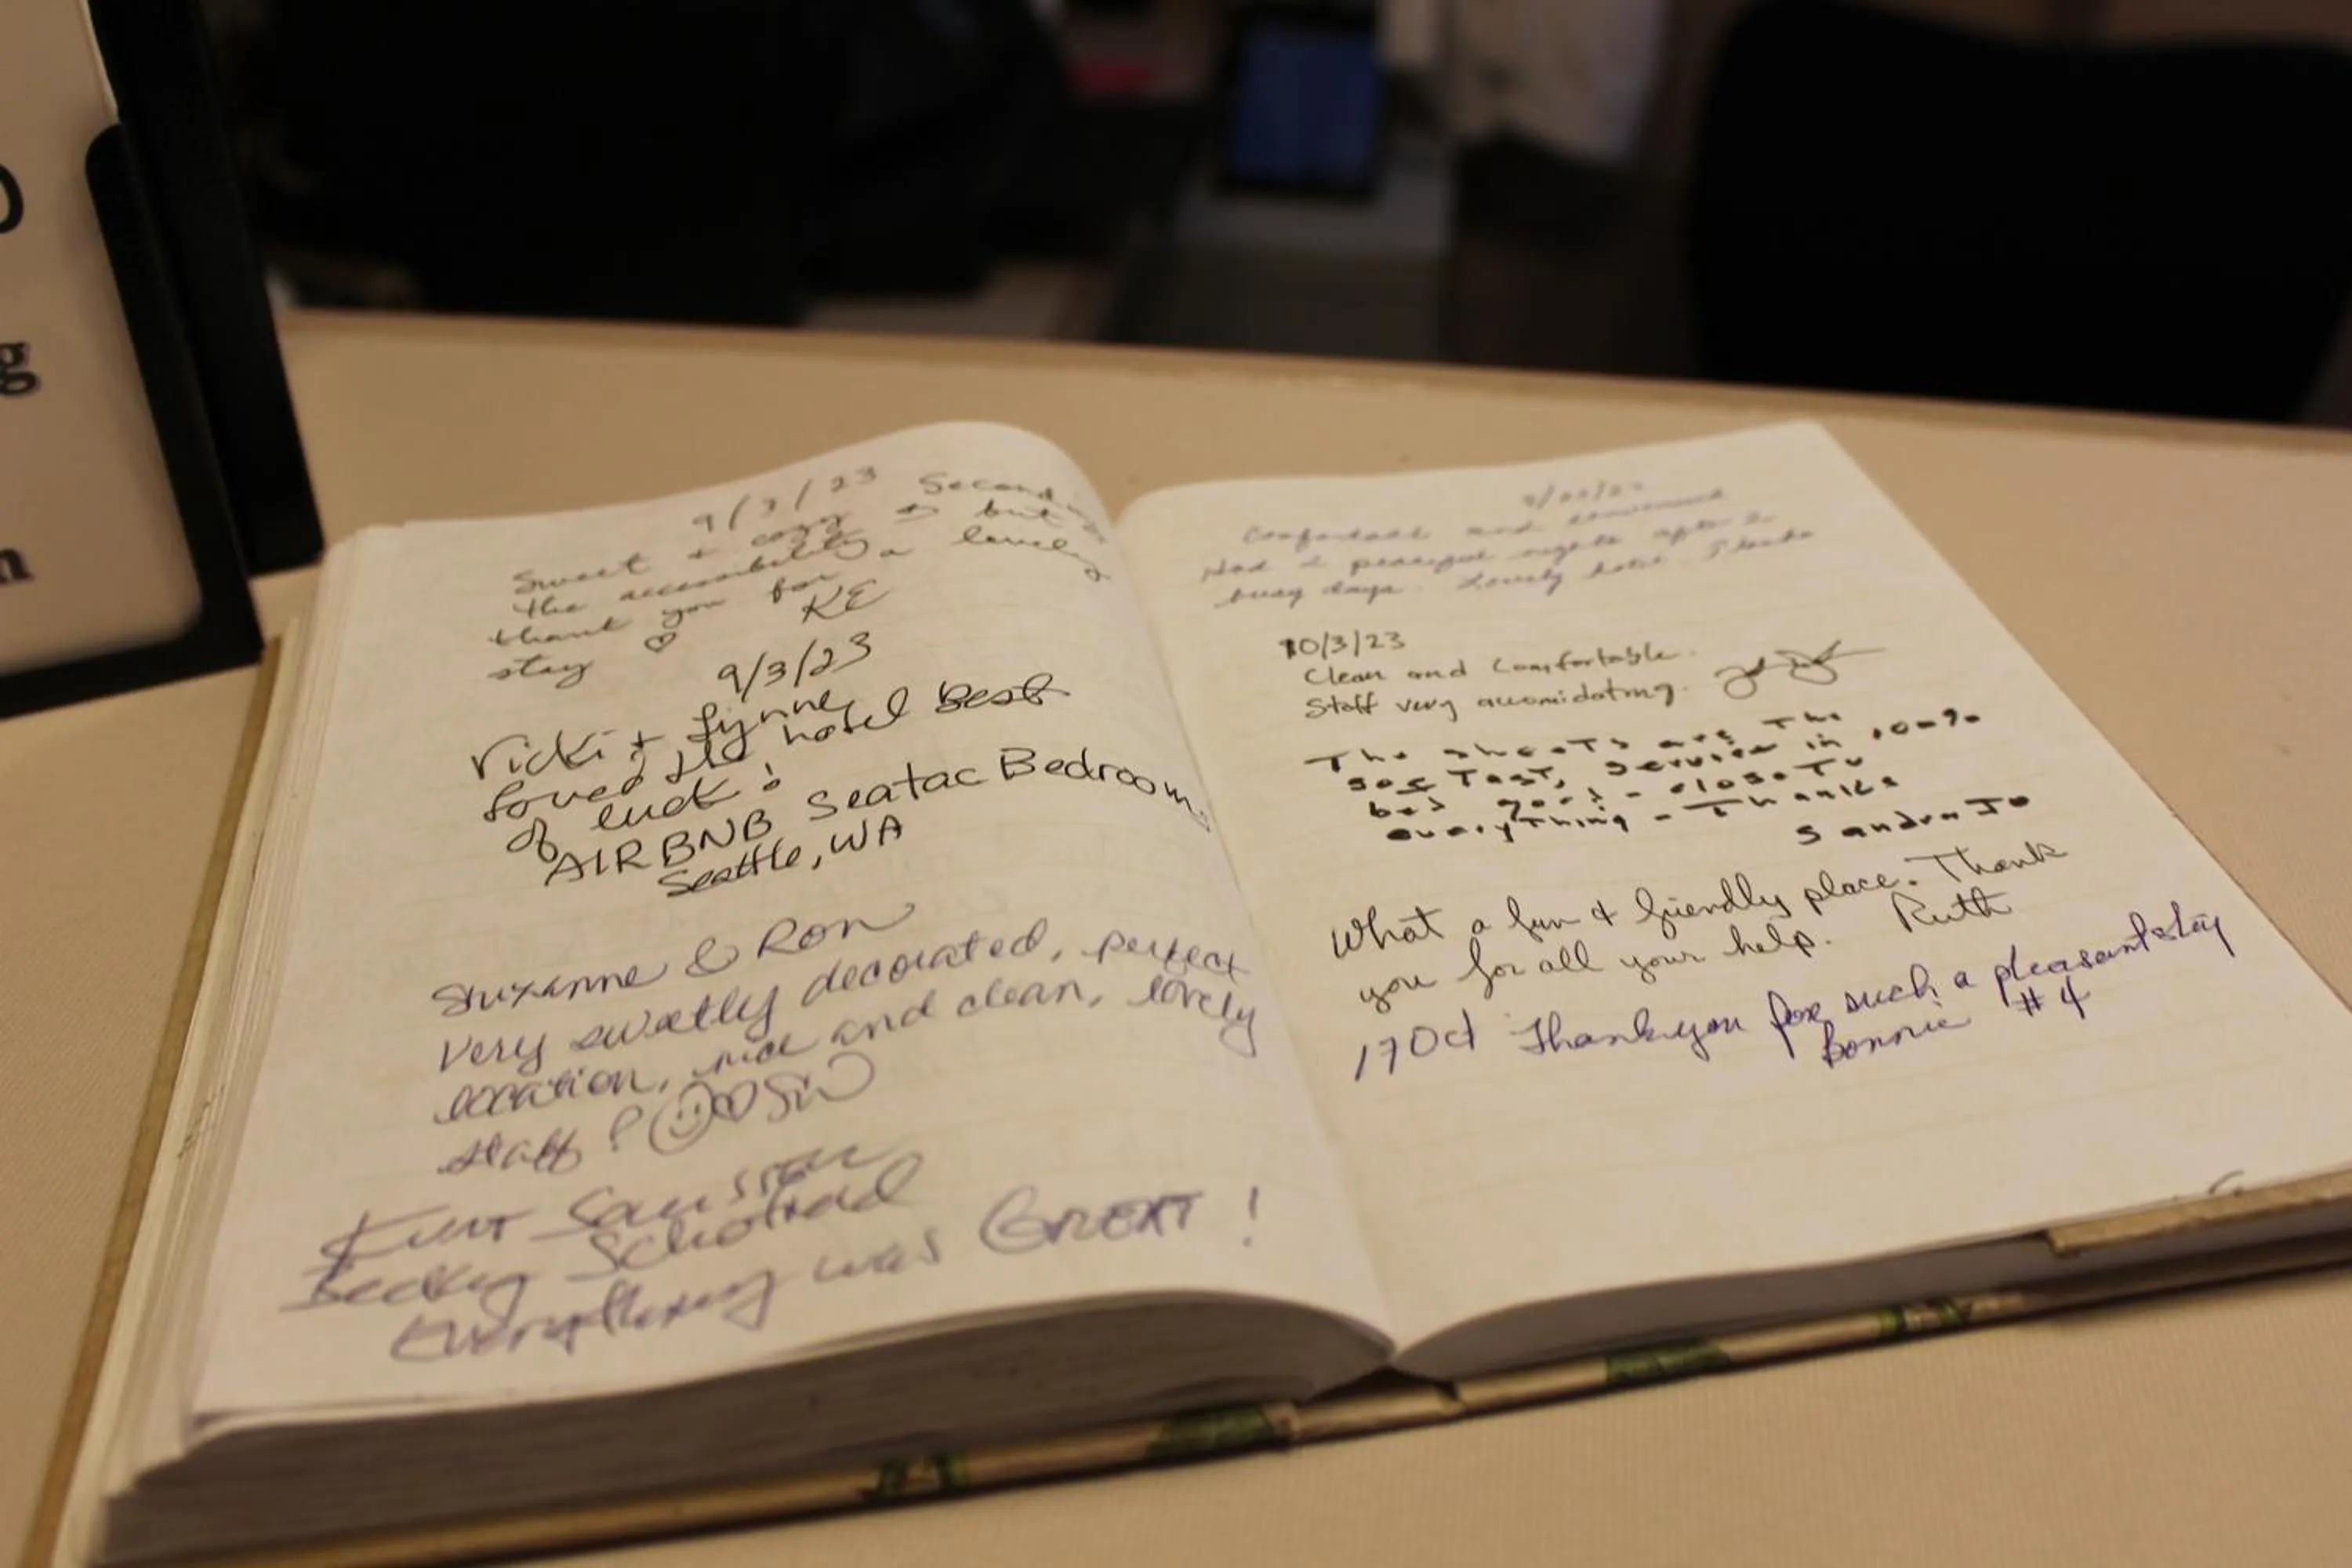 g
9/3/23
Sweet + cozy
the accessibility a lovely
thank you for
stay ♡ KE
9/3/23
Vicki + Lynne
loved the hotel Best
of luck!
AIRBNB Seatac Bedroom
Seattle, WA
Suzanne & Ron
Very sweatly decorated, perfect
location, nice and clean, lovely
staff!
Kurt
Becky
Everything was GREAT!
Comfortable and
Had 2 peaceful nights after 2
busy days. Lovely hotel.
10/3/23
Clean and Comfortable.
Staff very accomidating.
The sheets are The
softest, service in 100%
bed good - close To
everything - Thanks
Sandra Jo
What a fun & friendly place. Thank
you for all your help. Ruth
17 Oct Thank you for such a pleasant stay
Bonnie #4